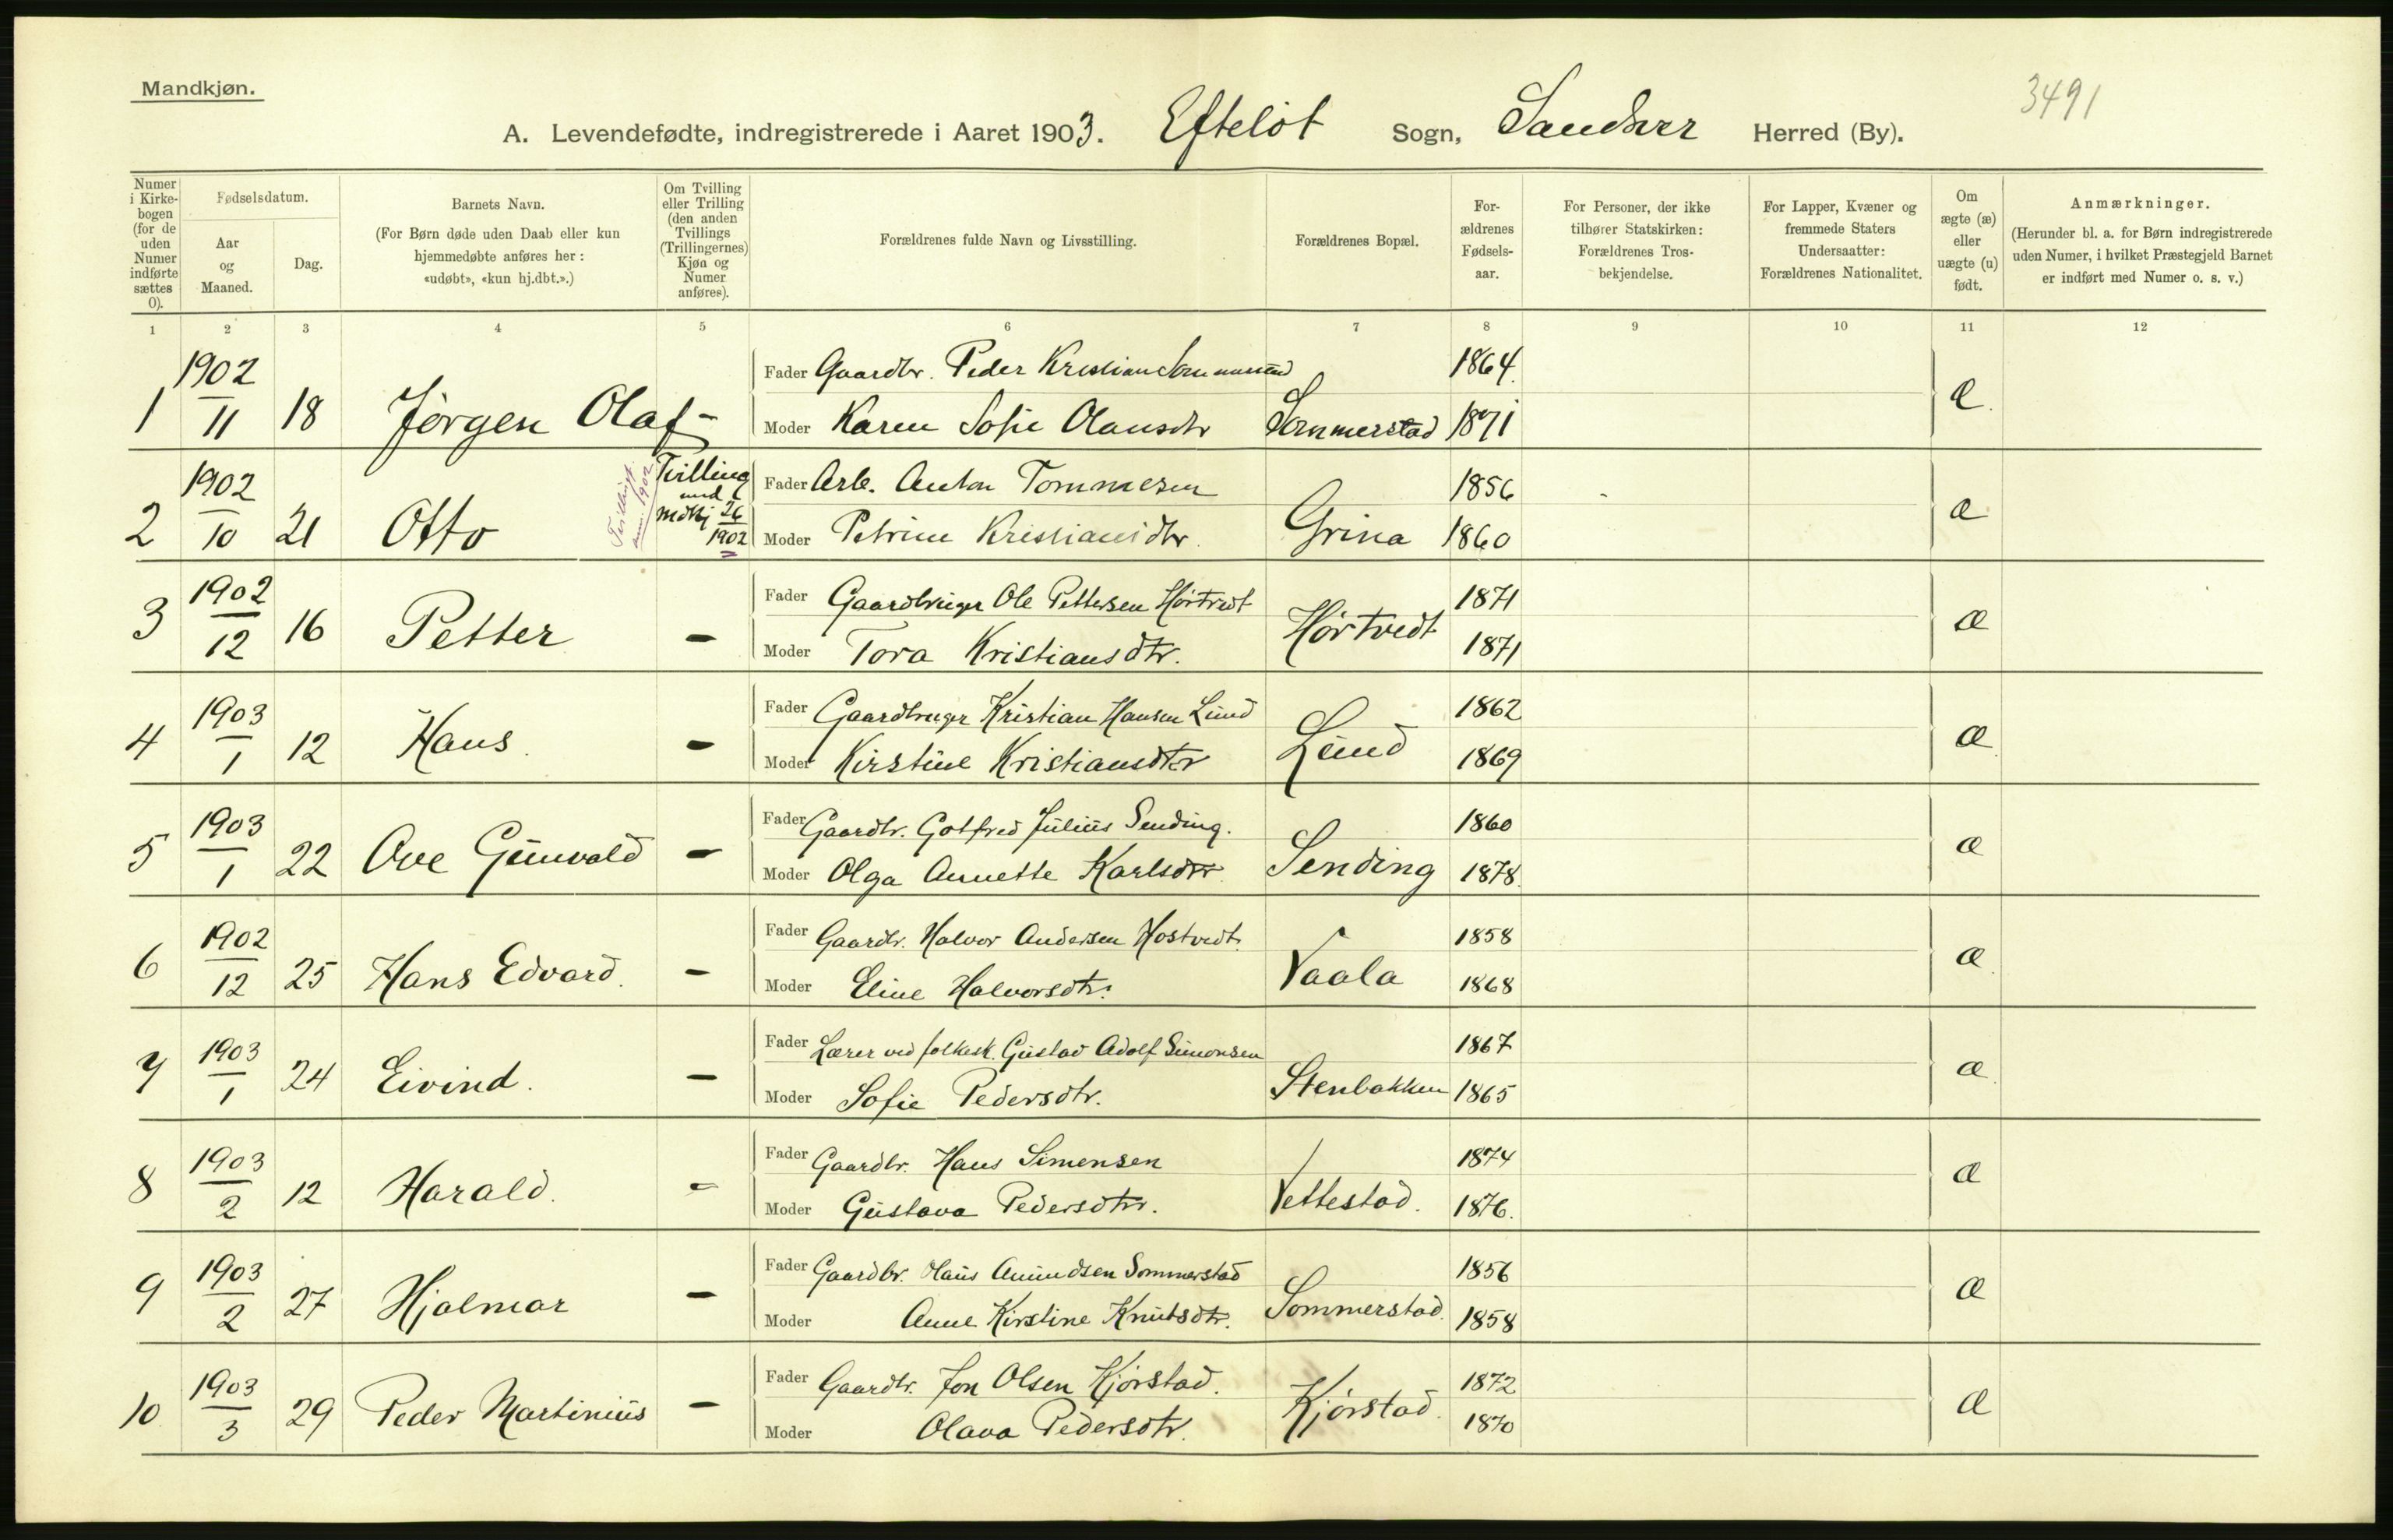 Mandkjøn.
3491
A. Levendefødte, indregistrerede i Aaret 1903. Efteløt Sogn, Sandsvær Herred (By).
Numer i Kirkebogen (for de uden Numer indførte sættes 0).
Fødselsdatum.
Aar og Maaned.
Dag.
Barnets Navn.
(For Børn døde uden Daab eller kun
hjemmedøbte anføres her:
«udøbt», «kun hj.dbt.».)
Om Tvilling
eller Trilling
(den anden
Tvillings
(Trillingernes)
Kjøn og
Numer
anføres).
Forældrenes fulde Navn og Livsstilling.
Forældrenes Bopæl.
For-
ældrenes
Fødsels-
aar.
For Personer, der ikke
tilhører Statskirken:
Forældrenes Tros-
bekjendelse.
For Lapper, Kvæner og
fremmede Staters
Undersaatter:
Forældrenes Nationalitet.
Om
ægte (æ)
eller
uægte (u)
født.
Anmærkninger.
(Herunder bl. a. for Børn indregistrerede
uden Numer, i hvilket Præstegjeld Barnet
er indført med Numer o. s. v.)
1 2 3 4 5 6 7 8 9 10 11 12
1 1902/11 18 Jørgen Olaf - Fader Gaardbr. Peder Kristian Sommerstad 1864. æ.
Moder Karen Sofie Olausdtr Sommerstad 1871
2 1902/10 21 Otto Tvilling med Mdkj 26/1902 Fader Arb. Anton Tommesen 1856 æ
Moder Petrine Kristiansdtr. Grina 1860
3 1902/12 16 Petter - Fader Gaardbruger Ole Pettersen Hørtvedt Hørtvedt 1871 æ
Moder Tora Kristiansdtr. 1871
4 1903/1 12 Hans. - Fader Gaardbruger Kristian Hansen Lund Lund 1862 æ
Moder Kirstine Kristiansdtr 1869
5 1903/1 22 Ove Gunvald - Fader Gaardbr. Gotfred Julius Sending. Sending 1860 æ
Moder Olga Annette Karlsdtr 1878.
6 1902/12 25 Hans Edvard. - Fader Gaardbr. Halvor Andersen Hostvedt. Vaala 1858 æ
Moder Eline Halvorsdtr. 1868
7 1903/1 24 Eivind. - Fader Lærer ved folkesk. Gustav Adolf Simonsen Stenbakken 1867 æ
Moder Sofie Pedersdtr. 1865
8 1903/2 12 Harald. - Fader Gaardbr. Hans Simensen Vettestad. 1874 æ
Moder Gustava Pedersdtr. 1876.
9 1903/2 27 Hjalmar - Fader Gaardbr. Olaus Amundsen Sommerstad Sommerstad. 1856 æ
Moder Anne Kirstine Knutsdtr. 1858
10 1903/3 29 Peder Martinius - Fader Gaardbr. Jon Olsen Kjørstad. Kjørstad. 1872 æ
Moder Olava Pedersdtr. 1870